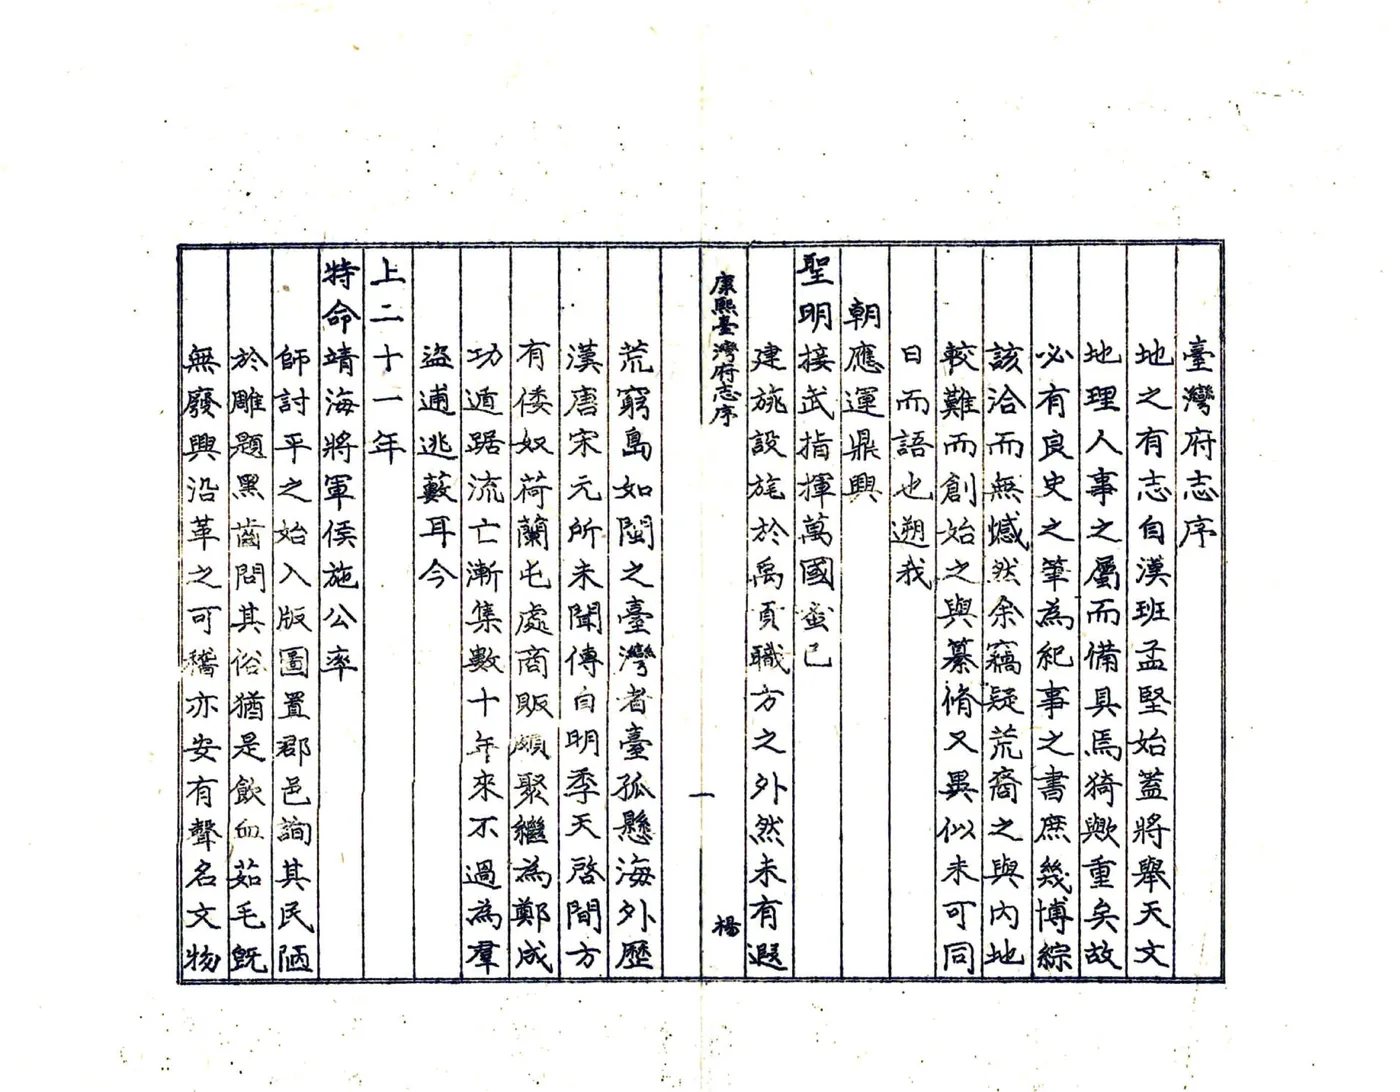 臺灣府志序
地之有志自漢班孟堅始蓋將舉天文
地理人事之屬而備具焉猗歟重矣故
必有良史之筆為紀事之書庶幾博綜
該洽而無憾然余竊疑荒裔之與內地
較難而創始之與纂脩又異似未可同
日而語也遡我
朝應運鼎興
聖明接武指揮萬國蚤已
建旐設旄於禹貢職方之外然未有遐
康熙臺灣府志序
一
楊
荒窮島如閩之臺灣者臺孤懸海外歷
漢唐宋元所未聞傳自明季天啓間方
有倭奴荷蘭屯處商販頗聚繼為鄭成
功遁踞流亡漸集數十年來不過為羣
盜逋逃藪耳今
上二十一年
特命靖海將軍侯施公率
師討平之始入版圖置郡邑詢其民陋
於雕題黑齒問其俗猶是飲血茹毛既
無廢興沿革之可稽亦安有聲名文物